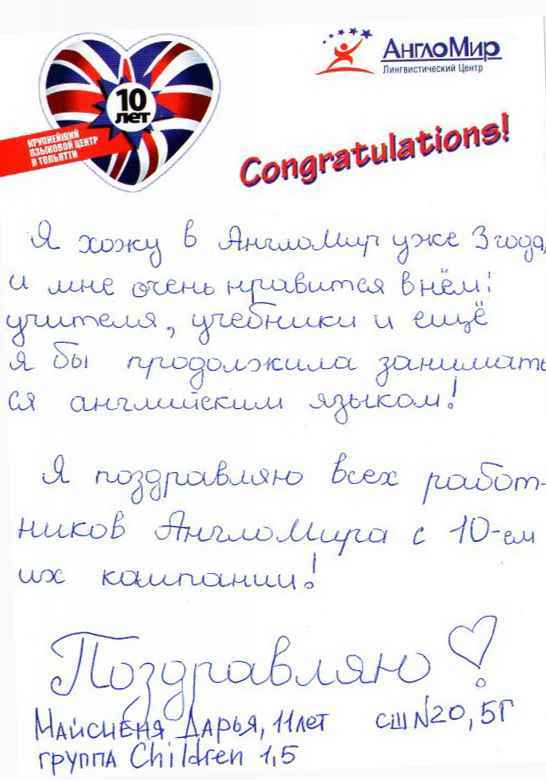 10
лет
КРУПНЕЙШИЙ
ЯЗЫКОВОЙ ЦЕНТР
В ТОЛЬЯТТИ
АнглоМир
Лингвистический Центр
Congratulations!
Я хожу в АнглоМир уже 3 года,
и мне очень нравится в нём:
учителя, учебники и ещё
я бы продолжила занимать
ся английским языком!
Я поздравляю всех работ-
ников АнглоМира с 10-ем
их кампании!
Поздравляю!
Дарья, 11 лет сш N20, 5Г
группа Children 1,5